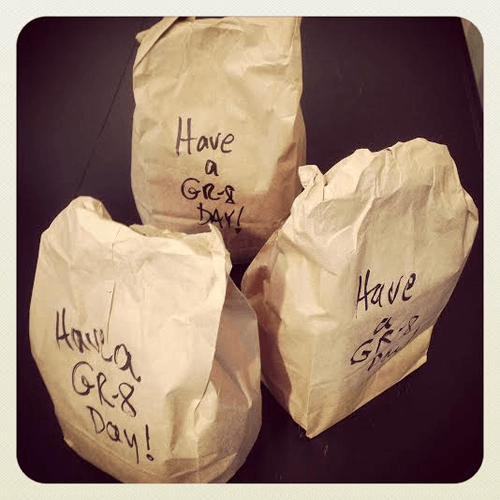 Have
a
GR-8
DAY!
Have a
GR-8
Day!
Have
a
GR-8